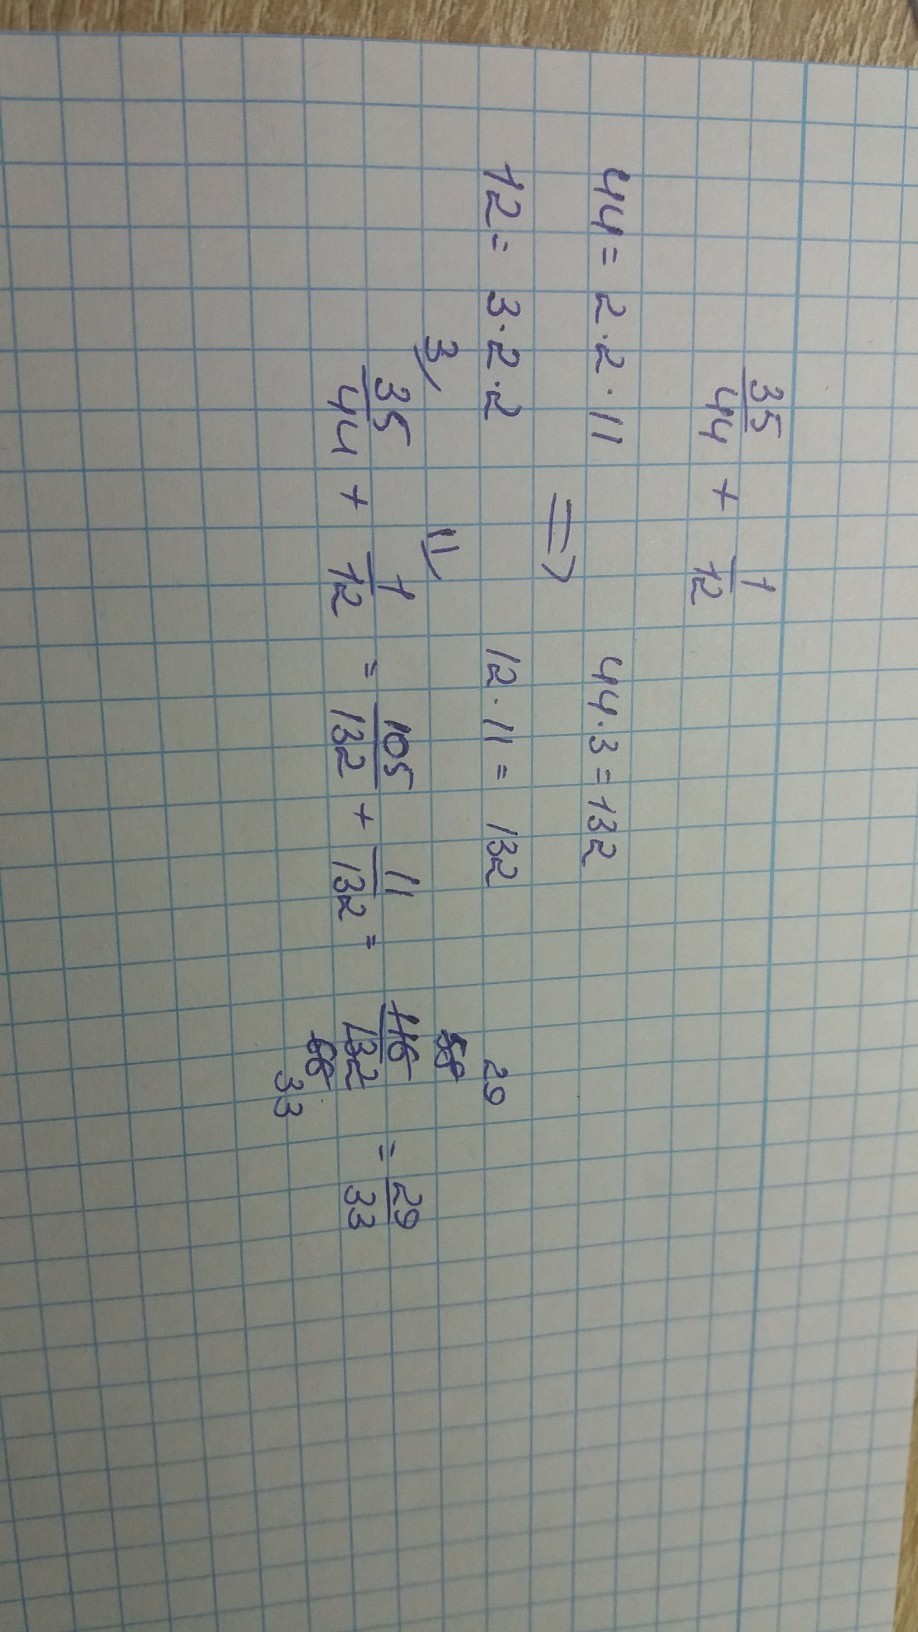 35/44 + 1/12
44 = 2·2·11 44·3=132
⇒
12 = 3·2·2 12·11 = 132
3 11 58 29
35/44 + 1/12 = 105/132 + 11/132 = 116/132 = 29/33
66 33